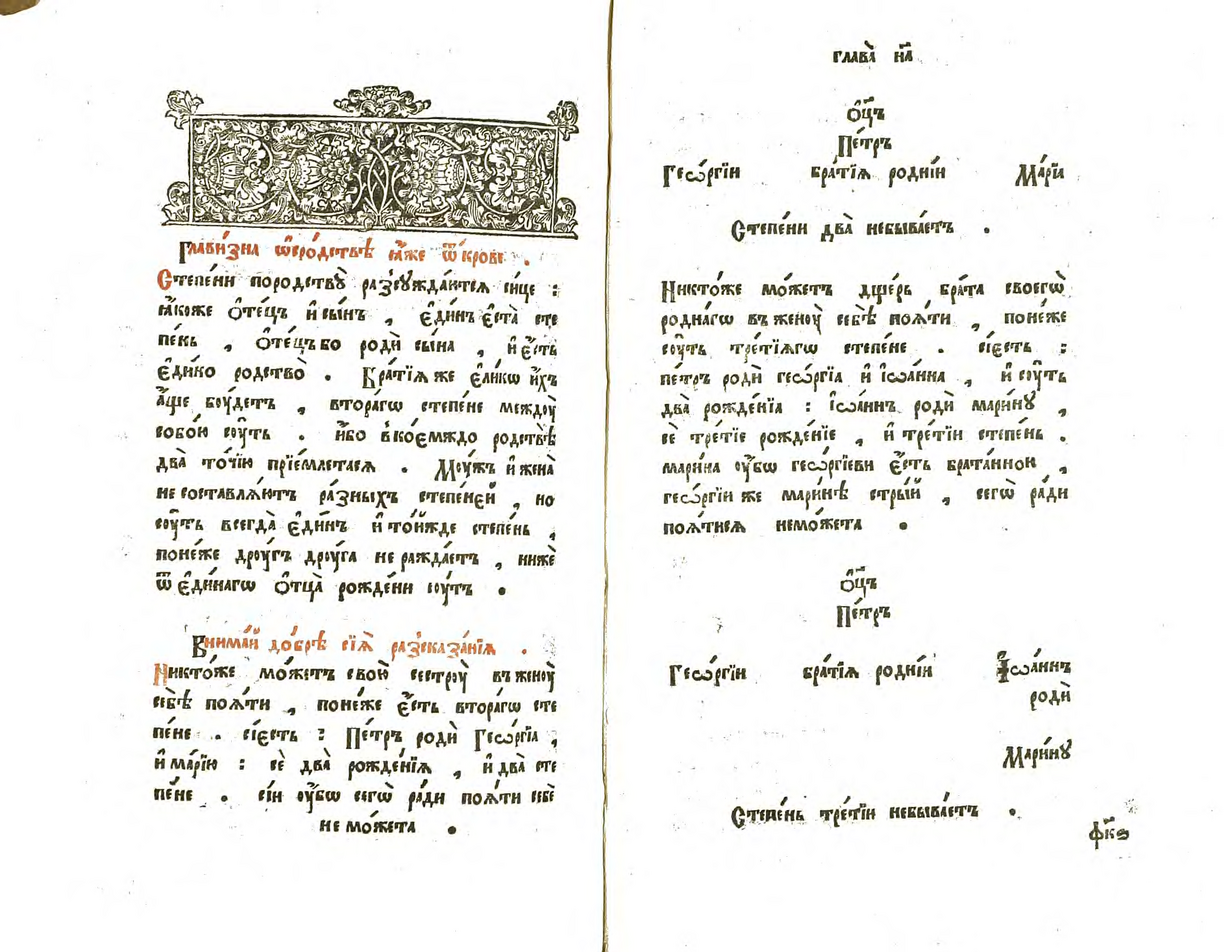 Главизна ѡ҆сро́дствѣ ꙗ҆́же ѿ кро́ве .
Степе́ни поро́дствꙋ̀ разсꙋжда́ются си́це :
ꙗ҆́коже ѻ҆те́цъ и҆ сы́нъ , є҆ди́нъ є҆ста̀ сте
пе́нь , ѻ҆те́цъ бо родѝ сы́на , и҆ є҆́сть
є҆ди́но родство̀ . Бра́тїѧ же є҆ли́кѡ и҆́хъ
а҆́ще бꙋ́детъ , втора́гѡ степе́не междꙋ̀
собо́ю сꙋ́ть . и҆́бо в ко́емждо ро́дствѣ
два̀ то́чїю прїе́млетасѧ . Мꙋ́жъ и҆ жена̀
не составлѧ́ютъ ра́зныхъ степене́й , но
сꙋ́ть всегда̀ є҆ди́нъ и҆ то́йжде степе́нь ,
поне́же дрꙋ́гъ дрꙋ́га не ражда́етъ , нижѐ
ѿ є҆ди́нагѡ ѻ҆тца̀ рожде́ни сꙋ́ть .
Внима́й до́брѣ сїѧ̀ разсказа́нїѧ .
Никто́же мо́жетъ свою̀ сестрꙋ̀ въ женꙋ̀
себѣ̀ поѧ́ти , поне́же є҆́сть втора́гѡ сте
пе́не . сїе́сть : Пе́тръ родѝ Геѡ́ргїа ,
и҆ ма́рїю : сѐ два̀ рожде́нїѧ , и҆ два̀ сте
пе́не . сі́и ᲂу҆́бѡ сегѡ̀ ра́ди поѧ́ти себѐ
не мо́жета .
глава̀ н҃а
ѻ҆ц҃ъ
Пе́тръ
Геѡ́ргїи бра́тїѧ родні́и Ма́рїи
Степе́ни два̀ небыва́етъ .
Никто́же мо́жетъ дще́рь бра́та своегѡ̀
родна́гѡ въ женꙋ̀ себѣ̀ поѧ́ти , поне́же
сꙋ́ть тре́тїѧгѡ степе́не . сїе́сть :
пе́тръ родѝ геѡ́ргїа и҆ і҆ѡа́нна , и҆ сꙋ́ть
два̀ рожде́нїѧ : і҆ѡа́ннъ родѝ мари́нꙋ ,
сѐ тре́тїе рожде́нїе , и҆ тре́тїи степе́нь .
мари́на ᲂу҆́бѡ геѡ́ргїеви є҆́сть брата́нною ,
геѡ́ргїи же мари́нѣ стры́й , сегѡ̀ ра́ди
поѧ́тисѧ немо́жета .
ѻ҆ц҃ъ
Пе́тръ
Геѡ́ргїи бра́тїѧ родні́и І҆ѡа́ннъ
родѝ
Мари́нꙋ
Степе́нь тре́тїи небыва́етъ .